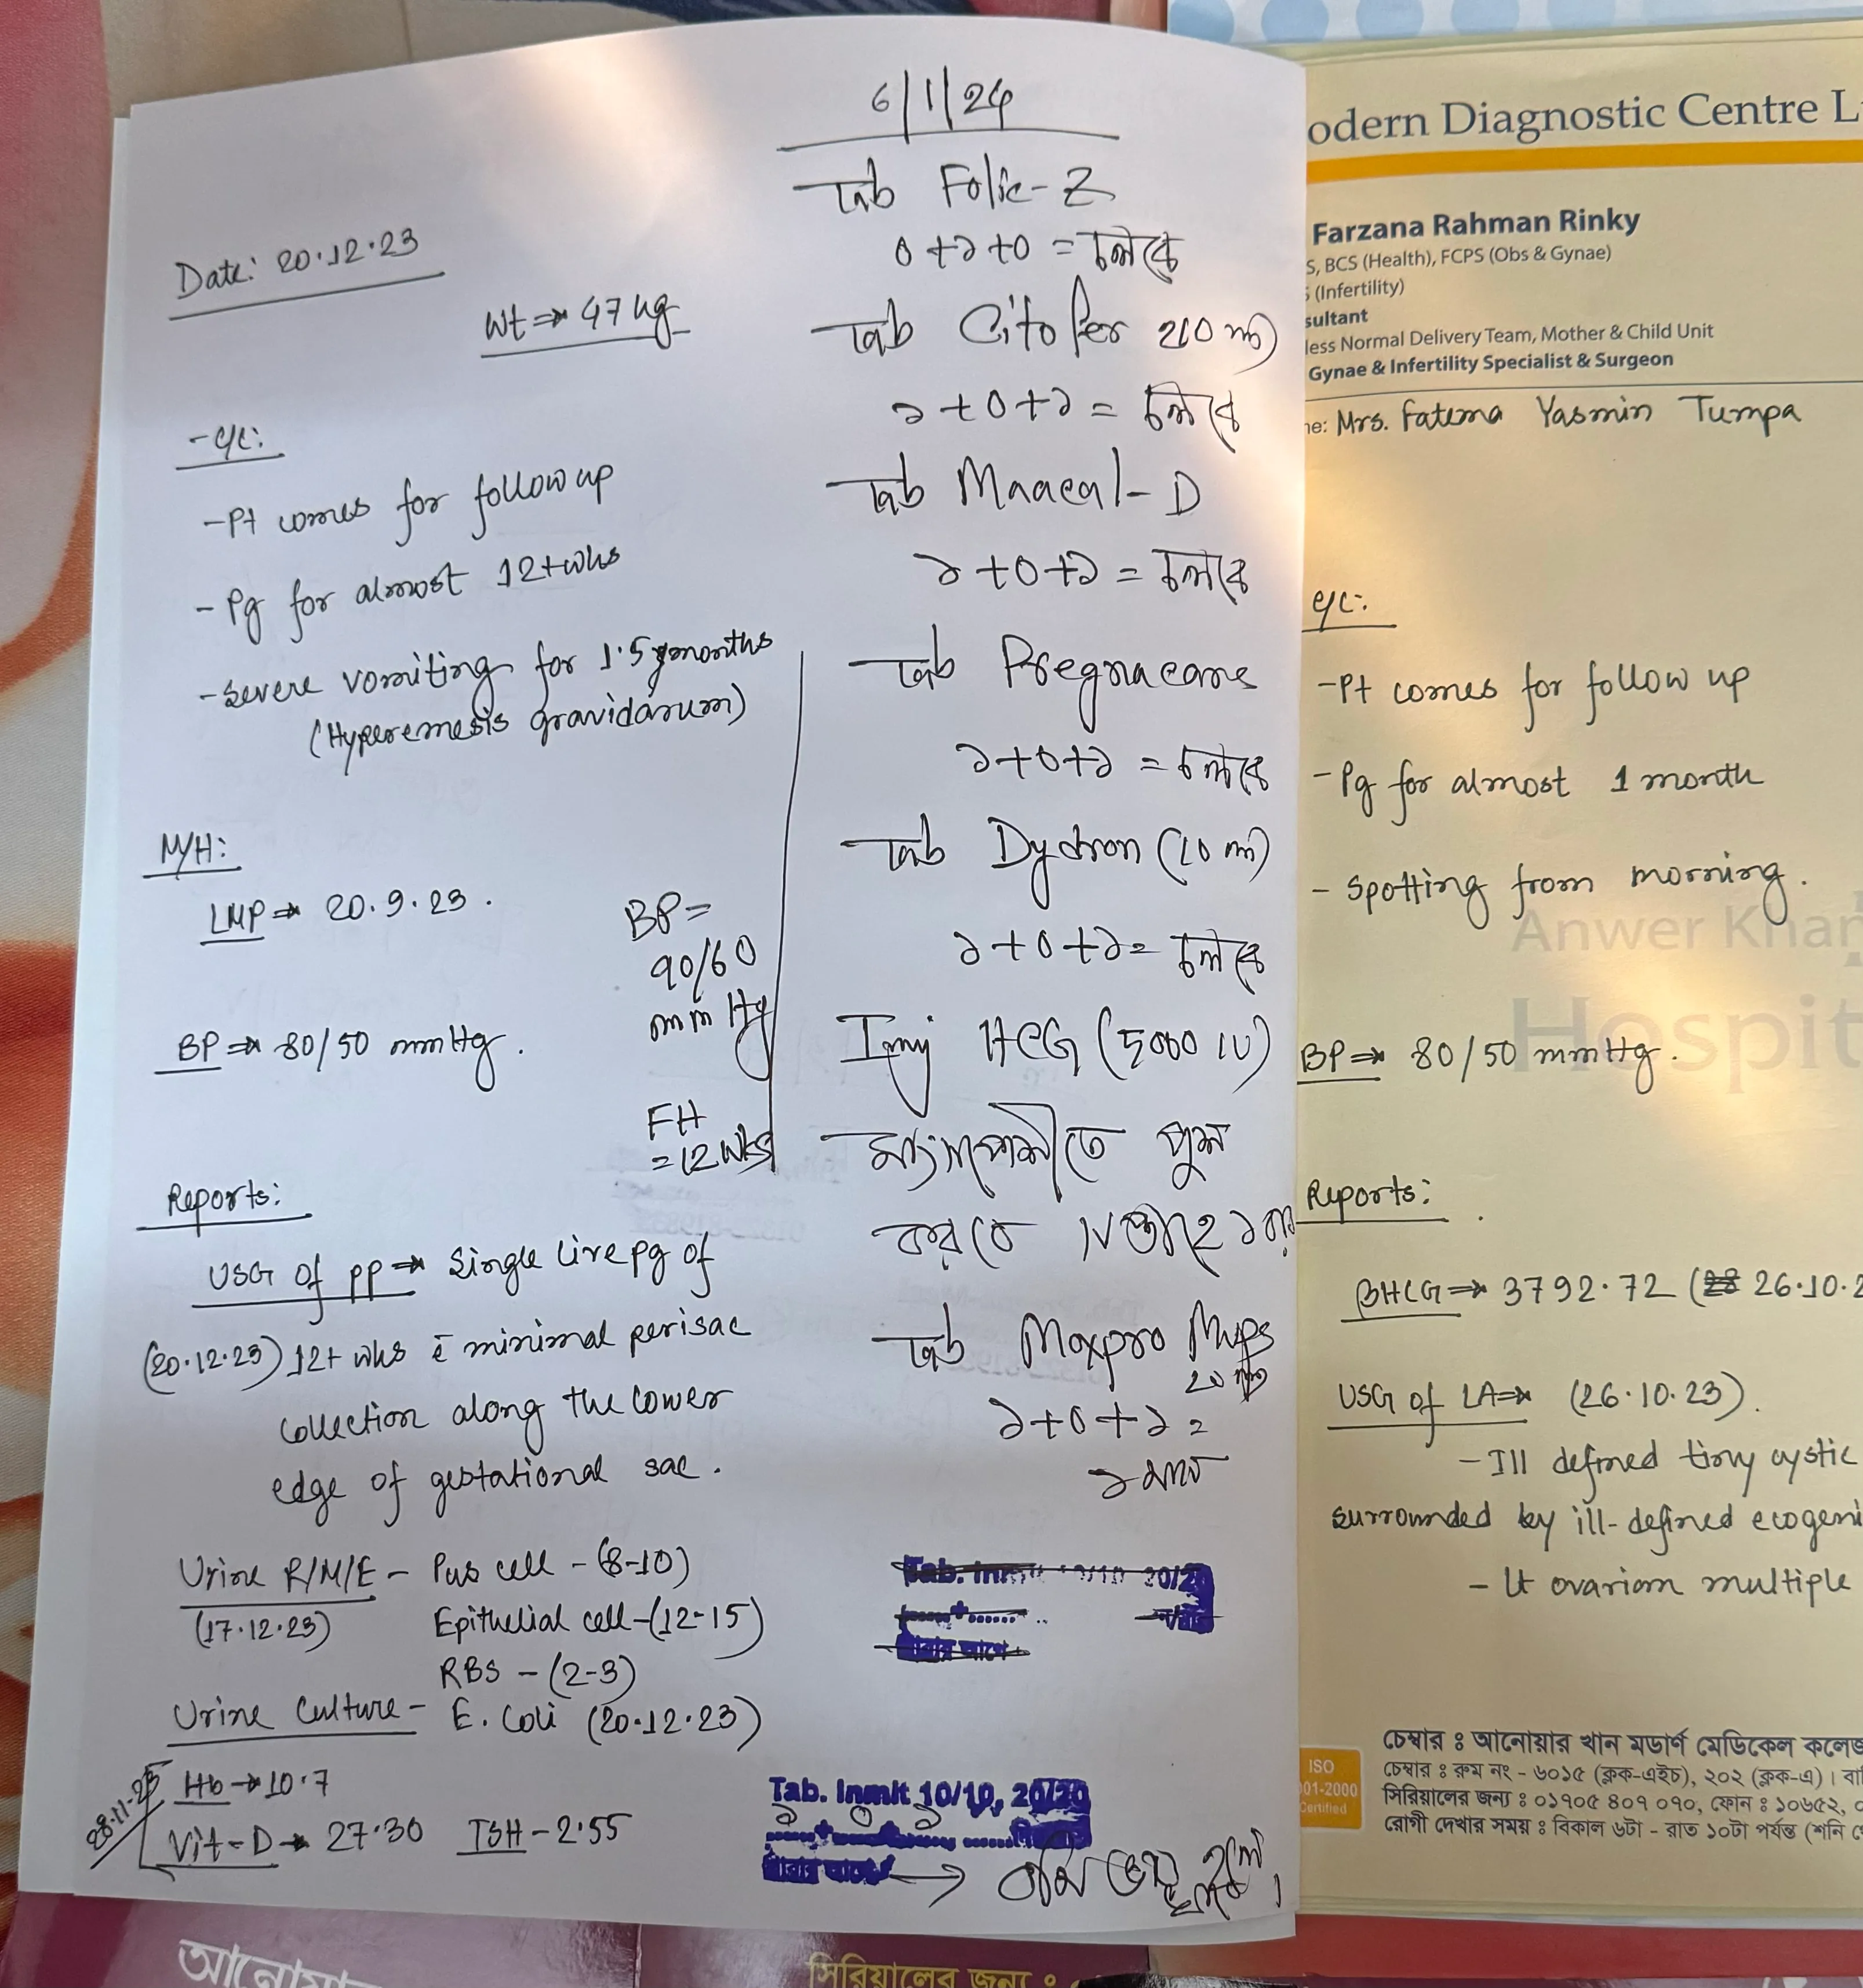 Date: 20.12.23
Wt ⇒ 47 kg
- C/C:
- Pt comes for follow up
- Pg for almost 12+ wks
- Severe vomiting for 1.5 months
(Hyperemesis gravidarum)
M/H:
LMP ⇒ 20.9.23.
BP ⇒ 80/50 mmHg.
BP =
90/60
mm Hg
FH
= 12 wks
Reports:
USG of PP ⇒ Single live pg of
(20.12.23) 12+ wks c̄ minimal perisac
collection along the lower
edge of gestational sac.
Urine R/M/E - Pus cell - (8-10)
(17.12.23) Epithelial cell - (12-15)
RBS - (2-3)
Urine Culture - E. Coli (20.12.23)
28.11.23
Hb → 10.7
Vit-D → 27.30 TSH - 2.55
6/1/24
Tab Folic-Z
0+১+0 = চলবে
Tab Citofer 210 ml
১+0+১ = চলবে
Tab Maacal-D
১+0+১ = চলবে
Tab Pregnacare
১+0+১ = চলবে
Tab Dydron (10 mg)
১+0+১ = চলবে
Inj HCG (5000 IU)
মাংসপেশীতে পুশ
করবে সপ্তাহে ১ বার
Tab Maxpro Mups
20 mg
১+0+১ =
১ মাস
Tab. Inmit 10/10, 20/20
১ 0 ১
→ বমি ভাব হলে।
odern Diagnostic Centre L
Farzana Rahman Rinky
S, BCS (Health), FCPS (Obs & Gynae)
(Infertility)
sultant
less Normal Delivery Team, Mother & Child Unit
Gynae & Infertility Specialist & Surgeon
ne: Mrs. Fatema Yasmin Tumpa
C/C:
- Pt comes for follow up
- Pg for almost 1 month
- Spotting from morning.
Anwer Khan
Hospit
BP ⇒ 80/50 mmHg.
Reports:
BHCG ⇒ 3792.72 (26.10.2
USG of LA ⇒ (26.10.23).
- Ill defined tiny cystic
surrounded by ill-defined ecogeni
- Lt ovarian multiple
ISO
001-2000
Certified
চেম্বার ঃ আনোয়ার খান মডার্ণ মেডিকেল কলেজ
চেম্বার ঃ রুম নং - ৬০১৫ (ব্লক-এইচ), ২০২ (ব্লক-এ)। বা
সিরিয়ালের জন্য ঃ ০১৯০৫ ৪০৭ ০৭০, ফোন ঃ ১০৬৫২,
রোগী দেখার সময় ঃ বিকাল ৬টা - রাত ১০টা পর্যন্ত (শনি
আনোয়া
সিরিয়ালের জন্য ঃ